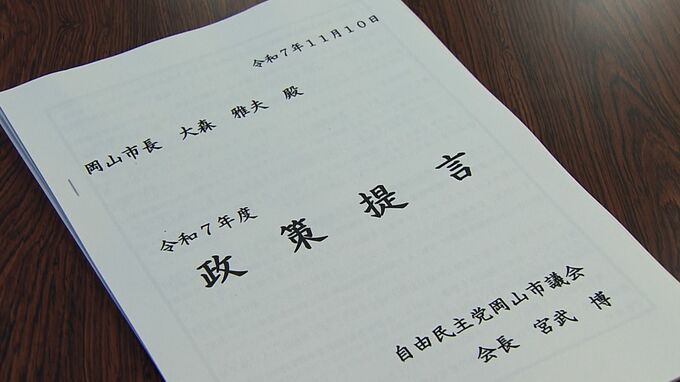 令和７年１１月１０日
岡山市長 大森 雅夫 殿
令和７年度
政策提言
自由民主党岡山市議会
会長 宮武 博